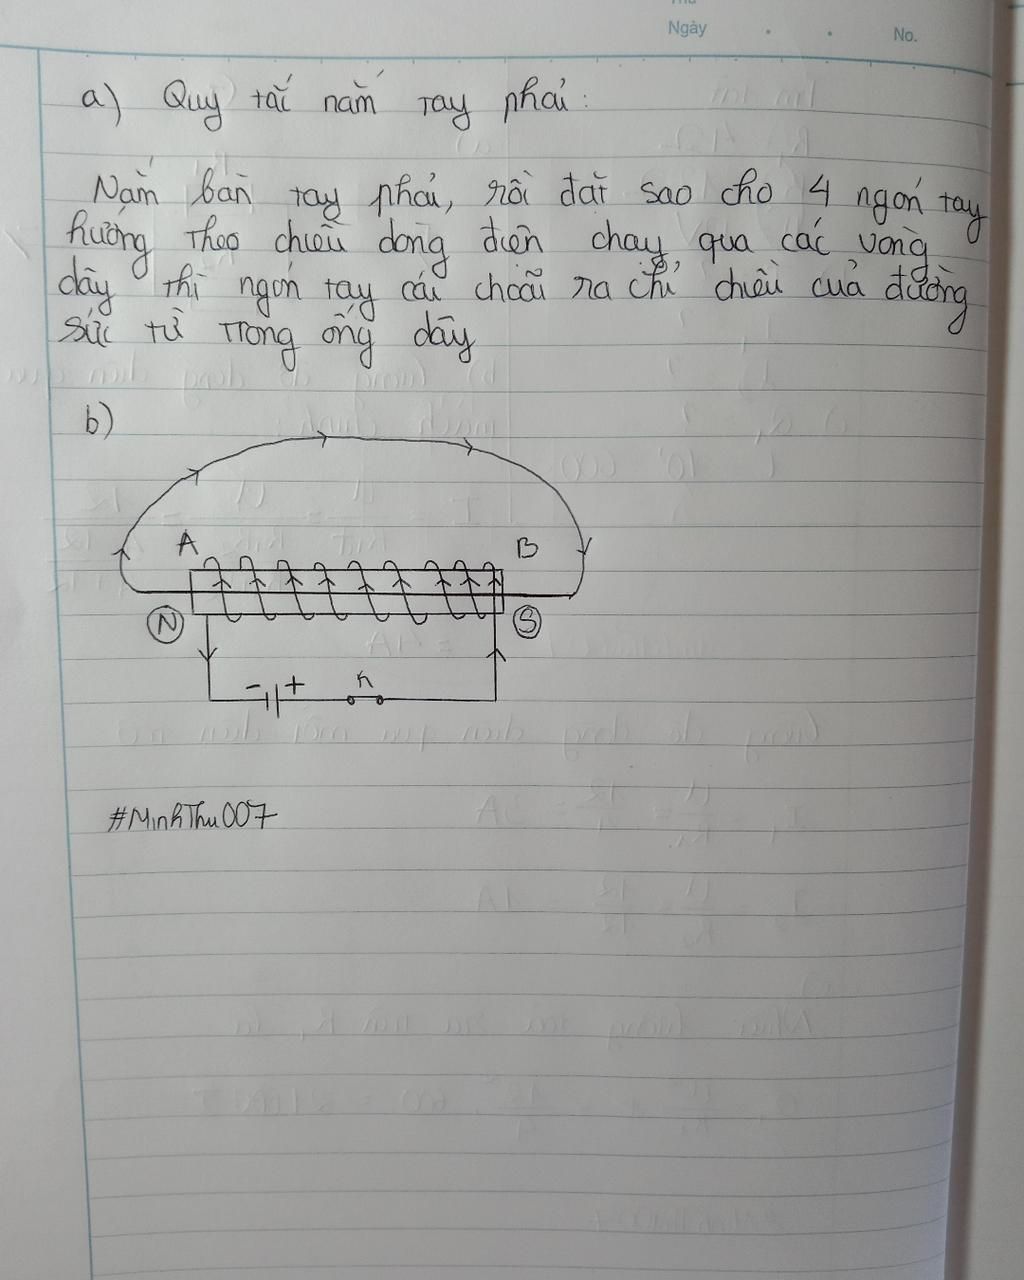 Ngày No.
a) Quy tắc nắm tay phải:
Nắm bàn tay phải, rồi đặt sao cho 4 ngón tay
hướng theo chiều dòng điện chạy qua các vòng
dây thì ngón tay cái choãi ra chỉ chiều của đường
sức từ trong ống dây
b)
A B
N S
- + K
#MinhThu007